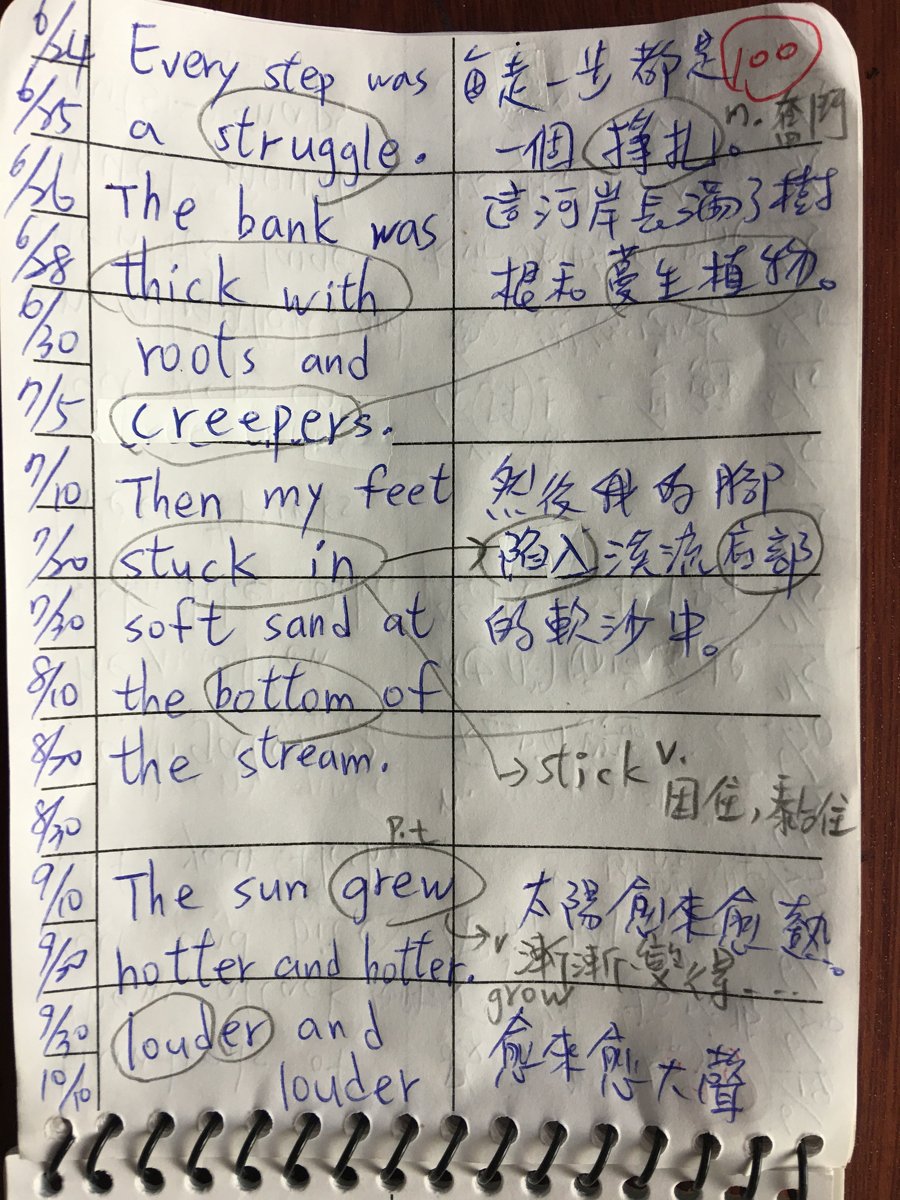 6/24
6/25
6/26
6/28
6/30
7/5
7/10
7/20
7/30
8/10
8/30
8/30
9/10
9/30
9/30
10/10
Every step was
a struggle.
The bank was
thick with
roots and
creepers.
Then my feet
stuck in
soft sand at
the bottom of
the stream.
p.t
The sun grew
hotter and hotter.
louder and
louder
100
每走一步都是
一個掙扎。
n. 奮鬥
這河岸長滿了樹
根和蔓生植物。
然後我的腳
陷入溪流底部
的軟沙中。
stick v.
困住,黏住
太陽愈來愈熱。
v 漸漸變得....
grow
愈來愈大聲